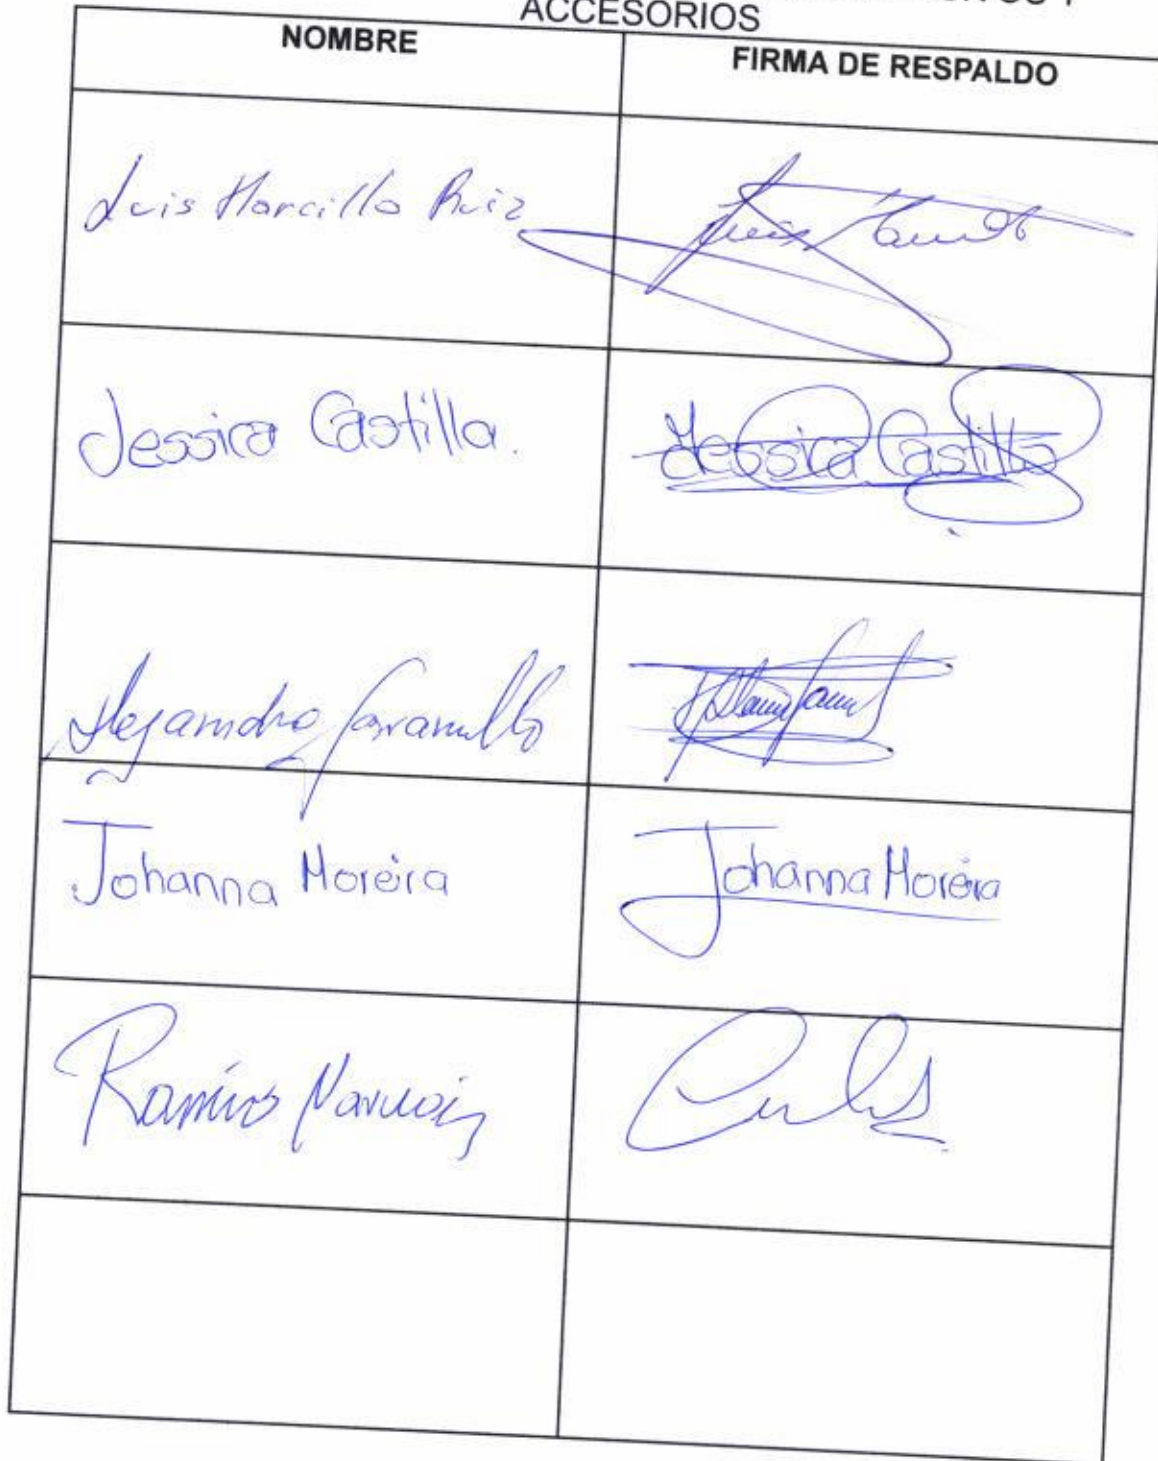 ACCESORIOS
NOMBRE FIRMA DE RESPALDO
Luis Marcillo Ruiz
Jessica Castilla. Jessica Castillo
Alejandro Jaramillo
Johanna Moreira Johanna Moreira
Ramiro